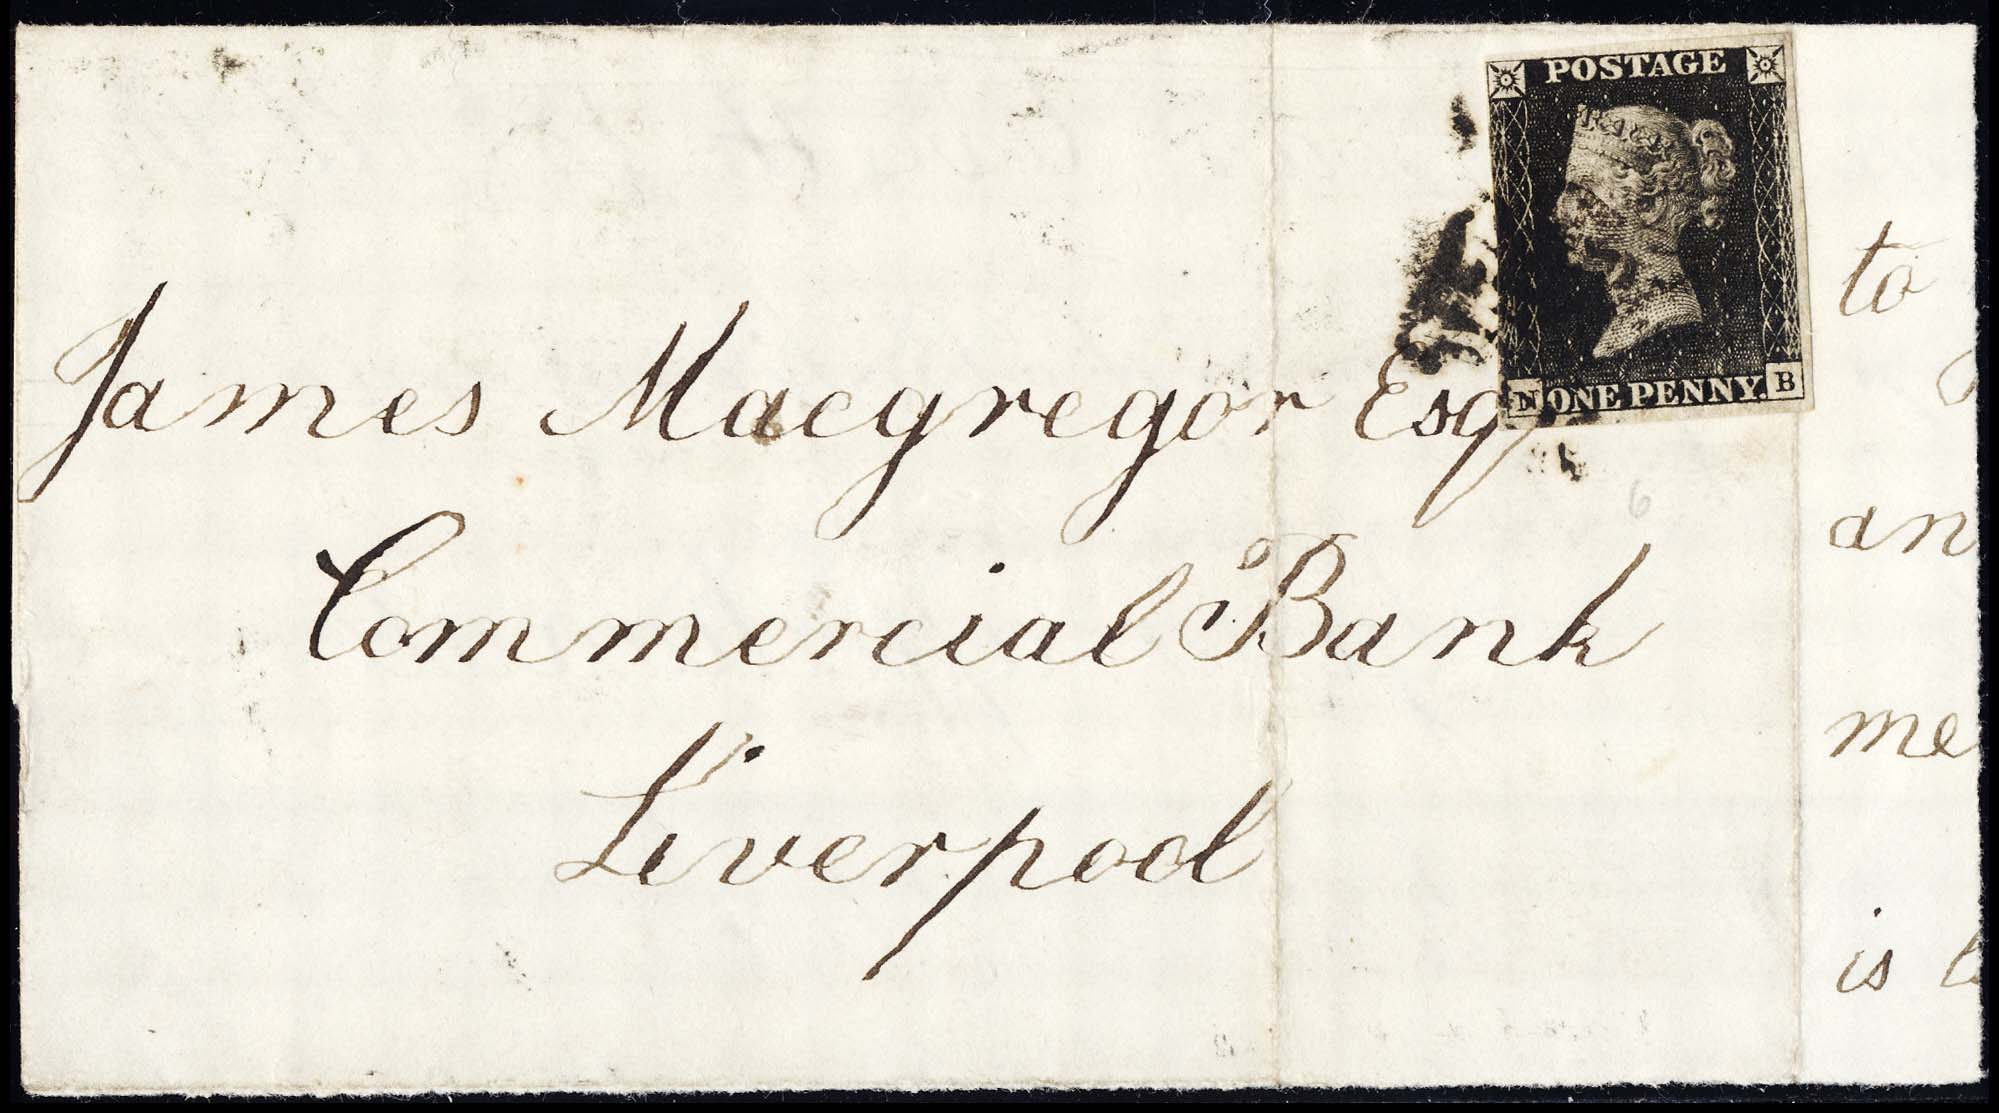 POSTAGE
ONE PENNY. B
James Macgregor Esq
Commercial Bank
Liverpool
to
an
me
is